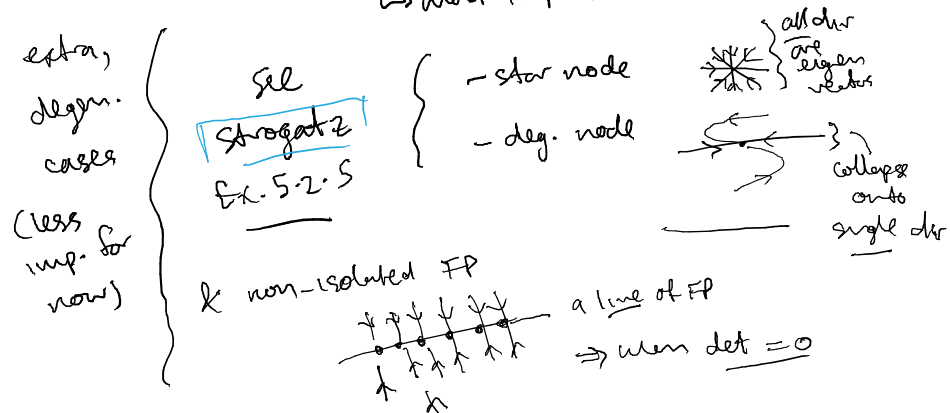 extra,
degen.
cases
(less
imp. for
now)
see
Strogatz
Ex. 5.2.5
- star node
- deg. node
all dir
are
eigen
vectors
collapse
onto
single dir
& non-isolated FP
a line of FP
⇒ when det = 0